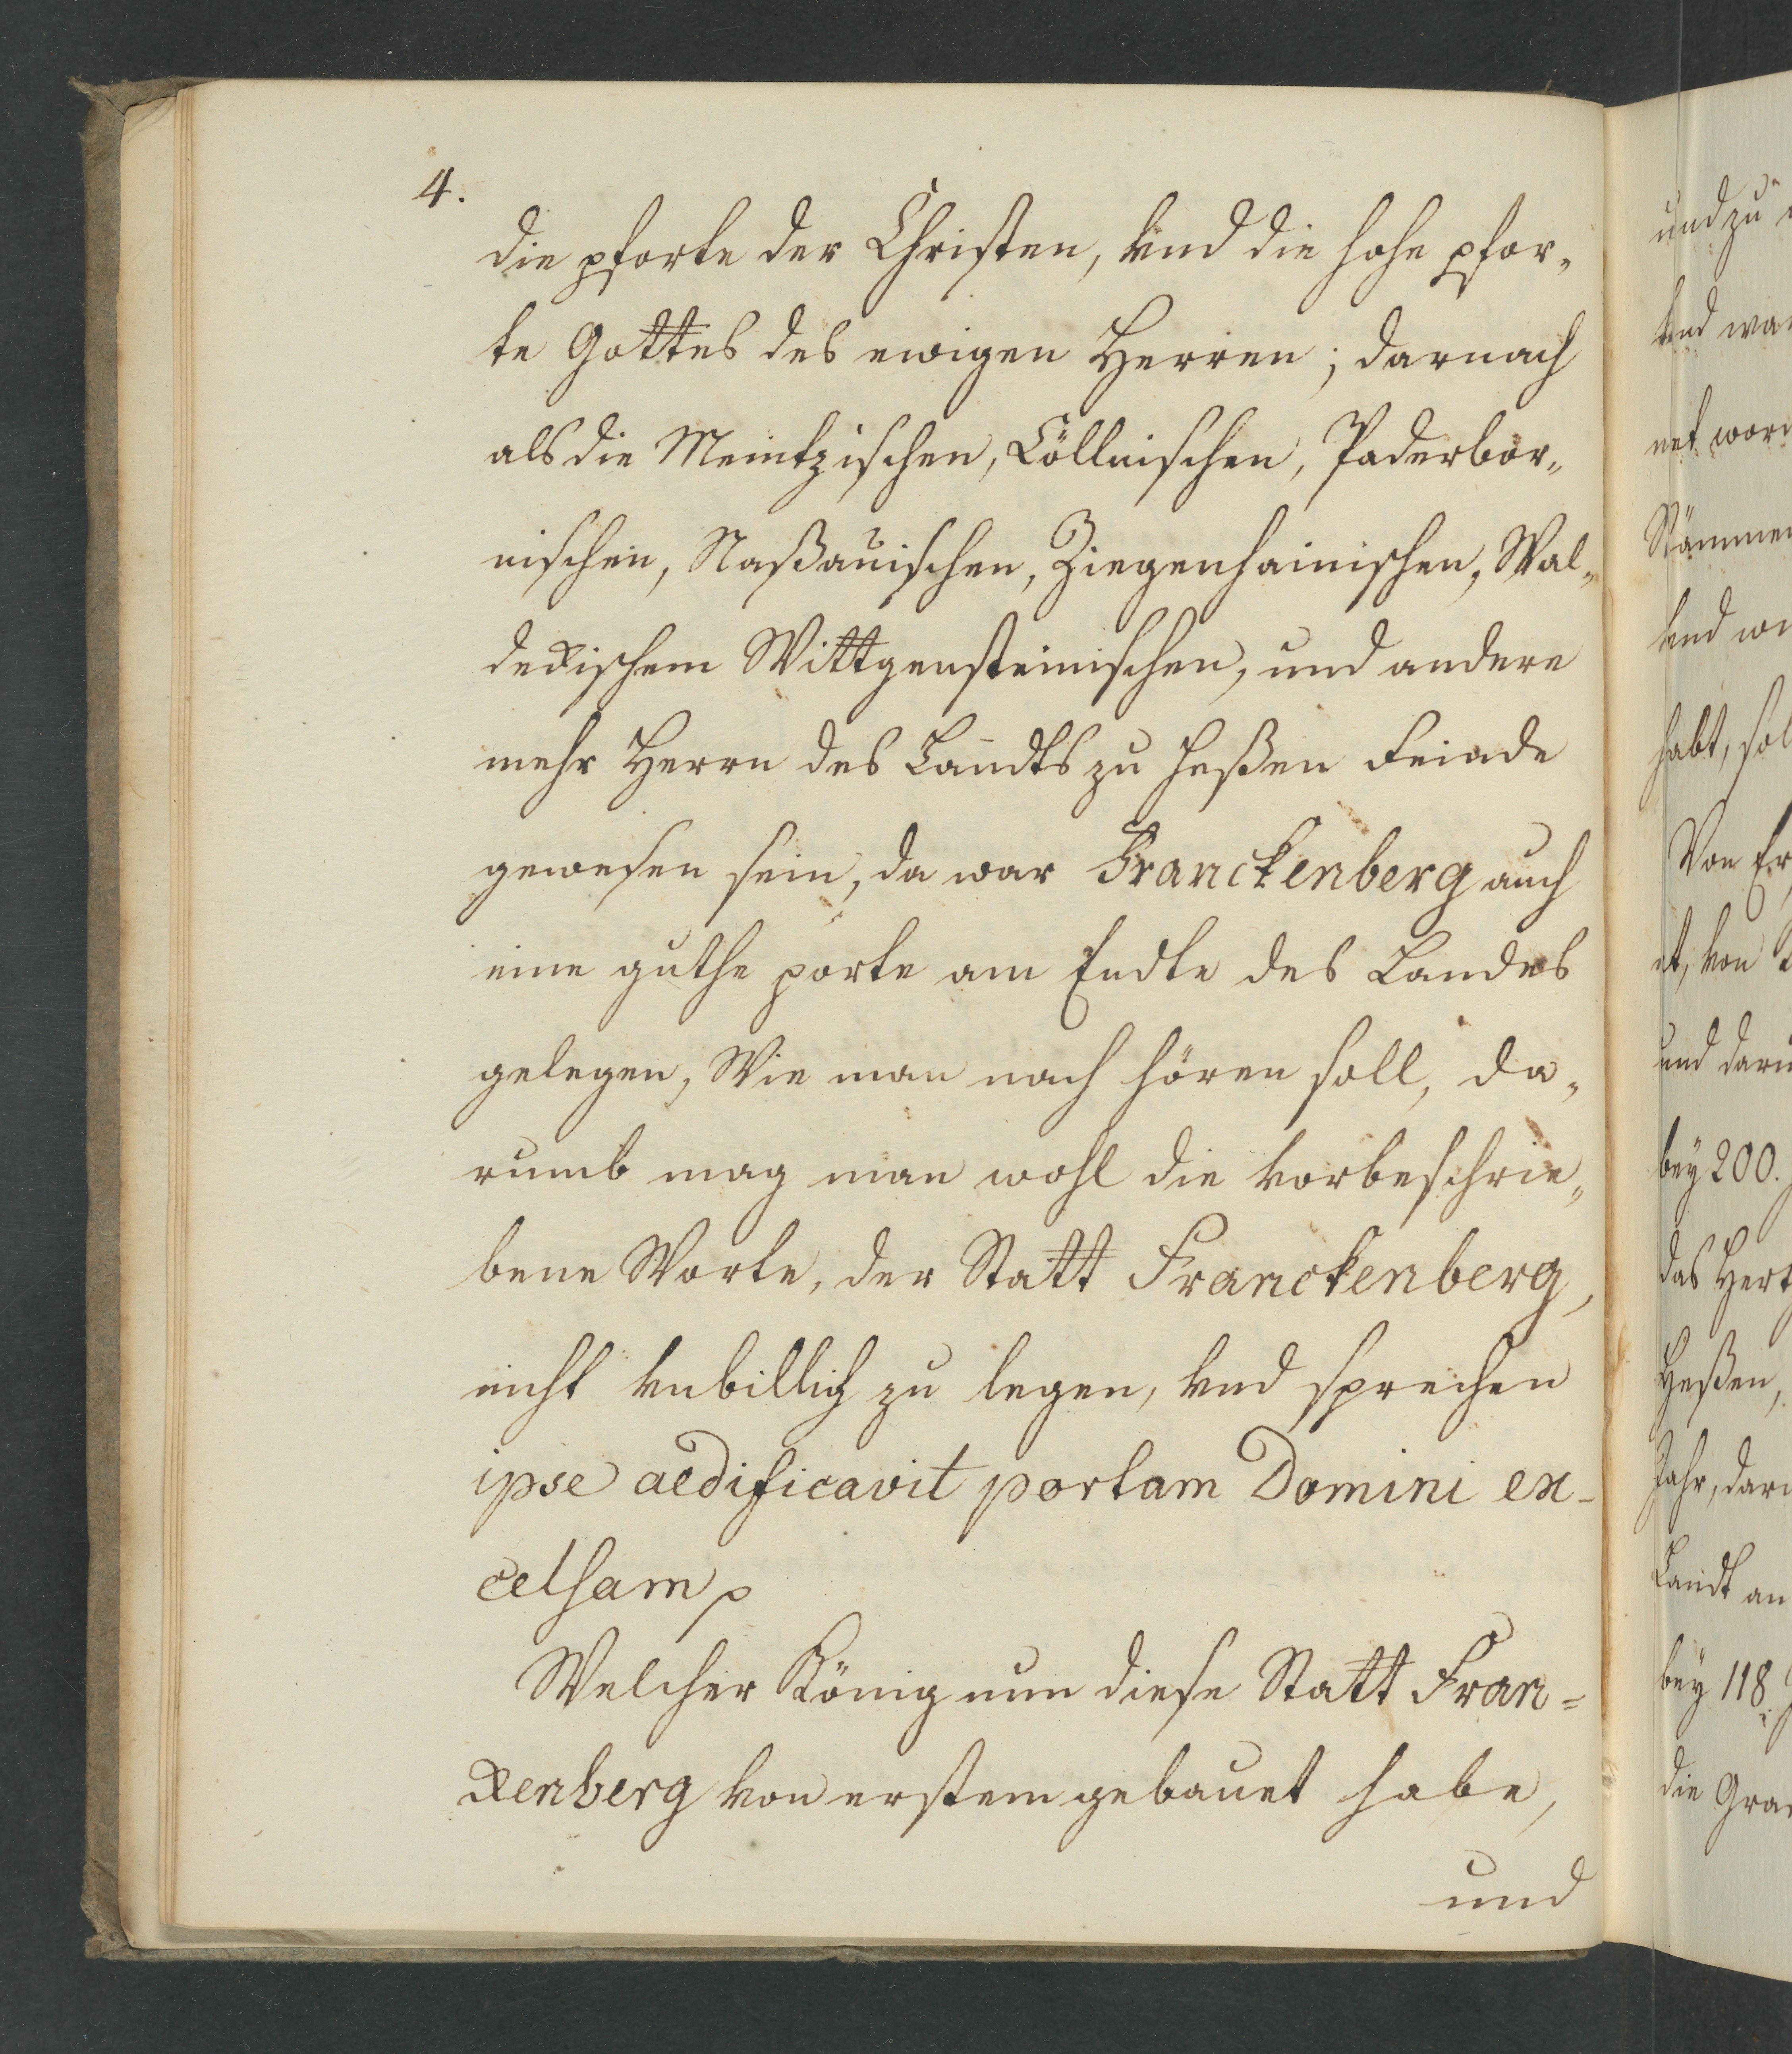 4.
die pforte der Christen, vnd die hohe pfor„
te Gottes des ewigen Herren; darnach
als die Meintzischen, Cöllnischen, Paderbor„
nischen, Naßauischen, Ziegenhainischen, Wal„
deckischem Wittgensteinischen, und andere
mehr Herrn des Landts zu Heßen Feinde
gewesen sein, da war Franckenberg auch
eine guthe porte am Endte des Landes
gelegen, Wie man noch hören soll, da„
rumb mag man wohl die vorbeschrie„
bene Worte, der Statt Franckenberg,
nicht vnbillich zu legen, vnd sprechen
ipse aedificavit portam Domini ex-
celsam p
Welcher König nun diese Statt Fran=
ckenberg von erstem gebauet habe,
und
und zu
vnd war
net
Stämmen
vnd
habt,
Von
et, von
und
bey 200.
das
Heßen,
Jahr,
Landt an
bey 118.
die